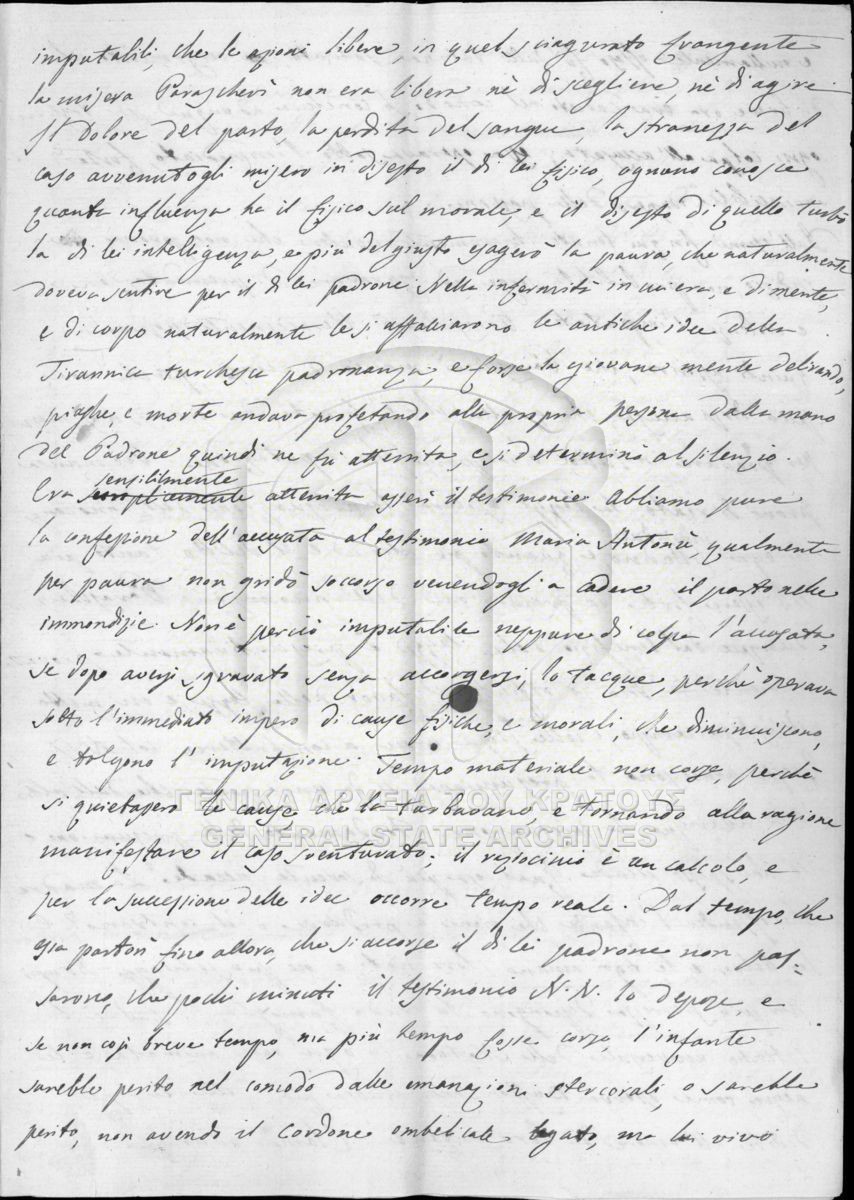 imputabili, che le azioni libere, in quel sciagurato frangente
la misera Paraschevì non era libera nè di scegliere, nè di agire.
Il Dolore del parto, la perdita del sangue, la stranezza del
caso avvenutogli misero in disesto il di lei fisico, ognuno conosce
quanta influenza ha il fisico sul morale, e il disesto di quello turbò
la di lei intelligenza, e più del giusto esagerò la paura, che naturalmente
doveva sentire per il di lei padrone. Nella infermità in cui era, e di mente,
e di corpo naturalmente le si affacciarono le antiche idee della
Tirannica turchesca padronanza, e forse la giovane mente delirando,
piaghe, e morte andava profetando alla propria persona dalla mano
del Padrone quindi ne fù atterrita, e si determinò al silenzio.
sensibilmente
Era atterrita asserì il testimonio. Abbiamo pure
la confessione dell'accusata al testimonio Maria Antonù, qualmente
per paura non gridò soccorso venendogli a cadere il parto nelle
immondizie. Non è perciò imputabile neppure di colpa l'accusata,
se dopo aversi sgravato senza accorgersi, lo tacque, perchè operava
sotto l'immediato impero di cause fisiche, e morali, che diminuiscono,
e tolgono l'imputazione. Tempo materiale non corse, perchè
si quietassero le cause, che la turbavano, e tornando alla ragione
ΓΕΝΙΚΑ ΑΡΧΕΙΑ ΤΟΥ ΚΡΑΤΟΥΣ
GENERAL STATE ARCHIVES
manifestare il caso sventurato; il raziocinio è un calcolo, e
per la successione delle idee occorre tempo reale. Dal tempo, che
essa partorì fino allora, che si accorse il di lei padrone non pas-
sarono, che pochi minuti il testimonio N. N. lo depose, e
se non così breve tempo, ma più tempo fosse corso, l'infante
sarebbe perito nel comodo dalle emanazioni stercorali, o sarebbe
perito, non avendo il cordone ombelicale legato, ma lui vivo